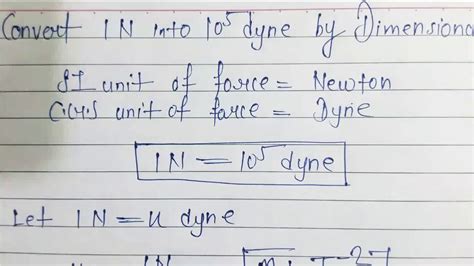 Convert 1N into 10⁵ dyne by Dimensiona
SI unit of force = Newton
CGS unit of force = Dyne
1N = 10⁵ dyne
Let 1N = u dyne
1N